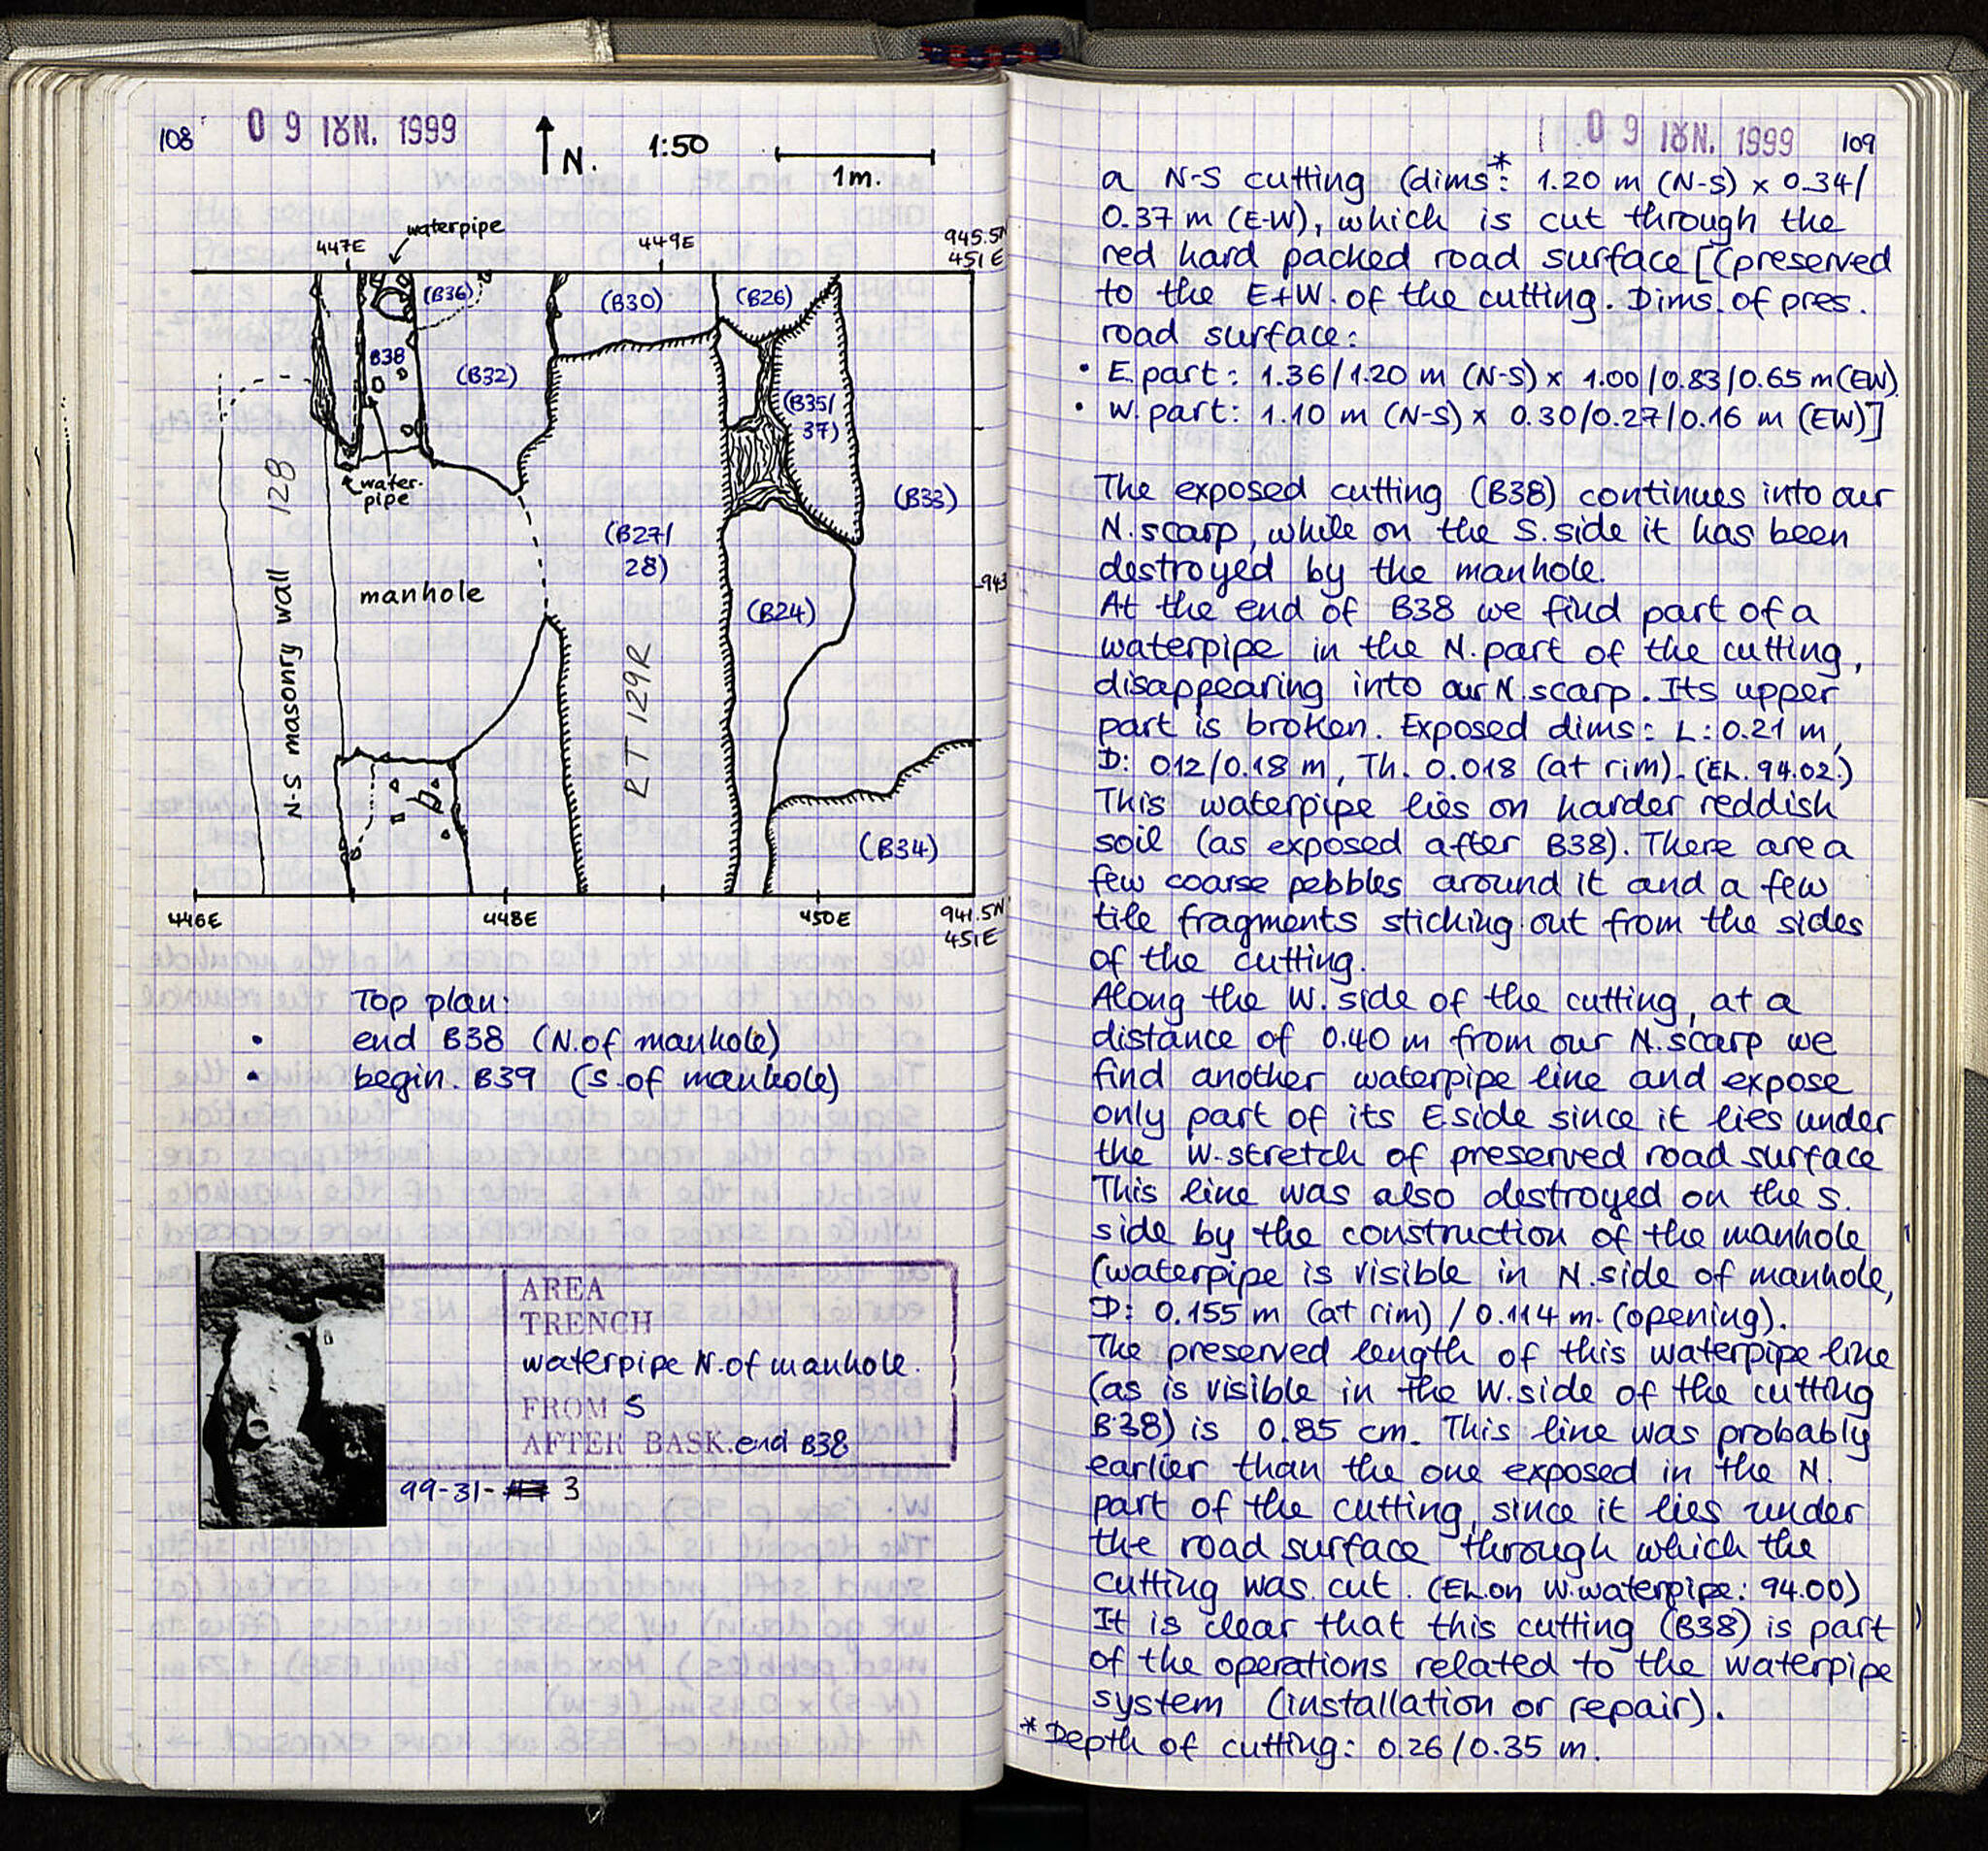 108
0 9 ΙΟΥΝ. 1999
N.
1:50
1m.
waterpipe
447E
449E
945.5N
451E
(B36)
(B30)
(B26)
B38
(B32)
(B35/
37)
water-
pipe
(B33)
(B27/
28)
943
manhole
(B24)
N-S masonry wall 128
RT 129R
(B34)
446E
448E
450E
941.5N
451E
Top plan:
• end B38 (N.of manhole)
• begin. B39 (S.of manhole)
AREA
TRENCH
waterpipe N.of manhole.
FROM S
AFTER BASK. end B38
99-31- 3
0 9 ΙΟΥΝ. 1999
109
a N-S cutting (dims*: 1.20 m (N-S) x 0.34/
0.37 m (E-W), which is cut through the
red hard packed road surface [(preserved
to the E+W. of the cutting. Dims. of pres.
road surface:
• E.part: 1.36/1.20 m (N-S) x 1.00/0.83/0.65 m (EW)
• W.part: 1.10 m (N-S) x 0.30/0.27/0.16 m (EW)]
The exposed cutting (B38) continues into our
N.scarp, while on the S.side it has been
destroyed by the manhole.
At the end of B38 we find part of a
waterpipe in the N.part of the cutting,
disappearing into our N.scarp. Its upper
part is broken. Exposed dims: L: 0.21 m,
D: 012/0.18 m, Th. 0.018 (at rim). (EL. 94.02.)
This waterpipe lies on harder reddish
soil (as exposed after B38). There are a
few coarse pebbles around it and a few
tile fragments sticking out from the sides
of the cutting.
Along the W.side of the cutting, at a
distance of 0.40 m from our N.scarp we
find another waterpipe line and expose
only part of its E side since it lies under
the W.stretch of preserved road surface
This line was also destroyed on the S.
side by the construction of the manhole
(waterpipe is visible in N.side of manhole,
D: 0.155 m (at rim) / 0.114 m. (opening).
The preserved length of this waterpipe line
(as is visible in the W.side of the cutting
B38) is 0.85 cm. This line was probably
earlier than the one exposed in the N.
part of the cutting, since it lies under
the road surface through which the
cutting was cut. (EL.on W.waterpipe: 94.00)
It is clear that this cutting (B38) is part
of the operations related to the waterpipe
system (installation or repair).
* Depth of cutting: 0.26/0.35 m.